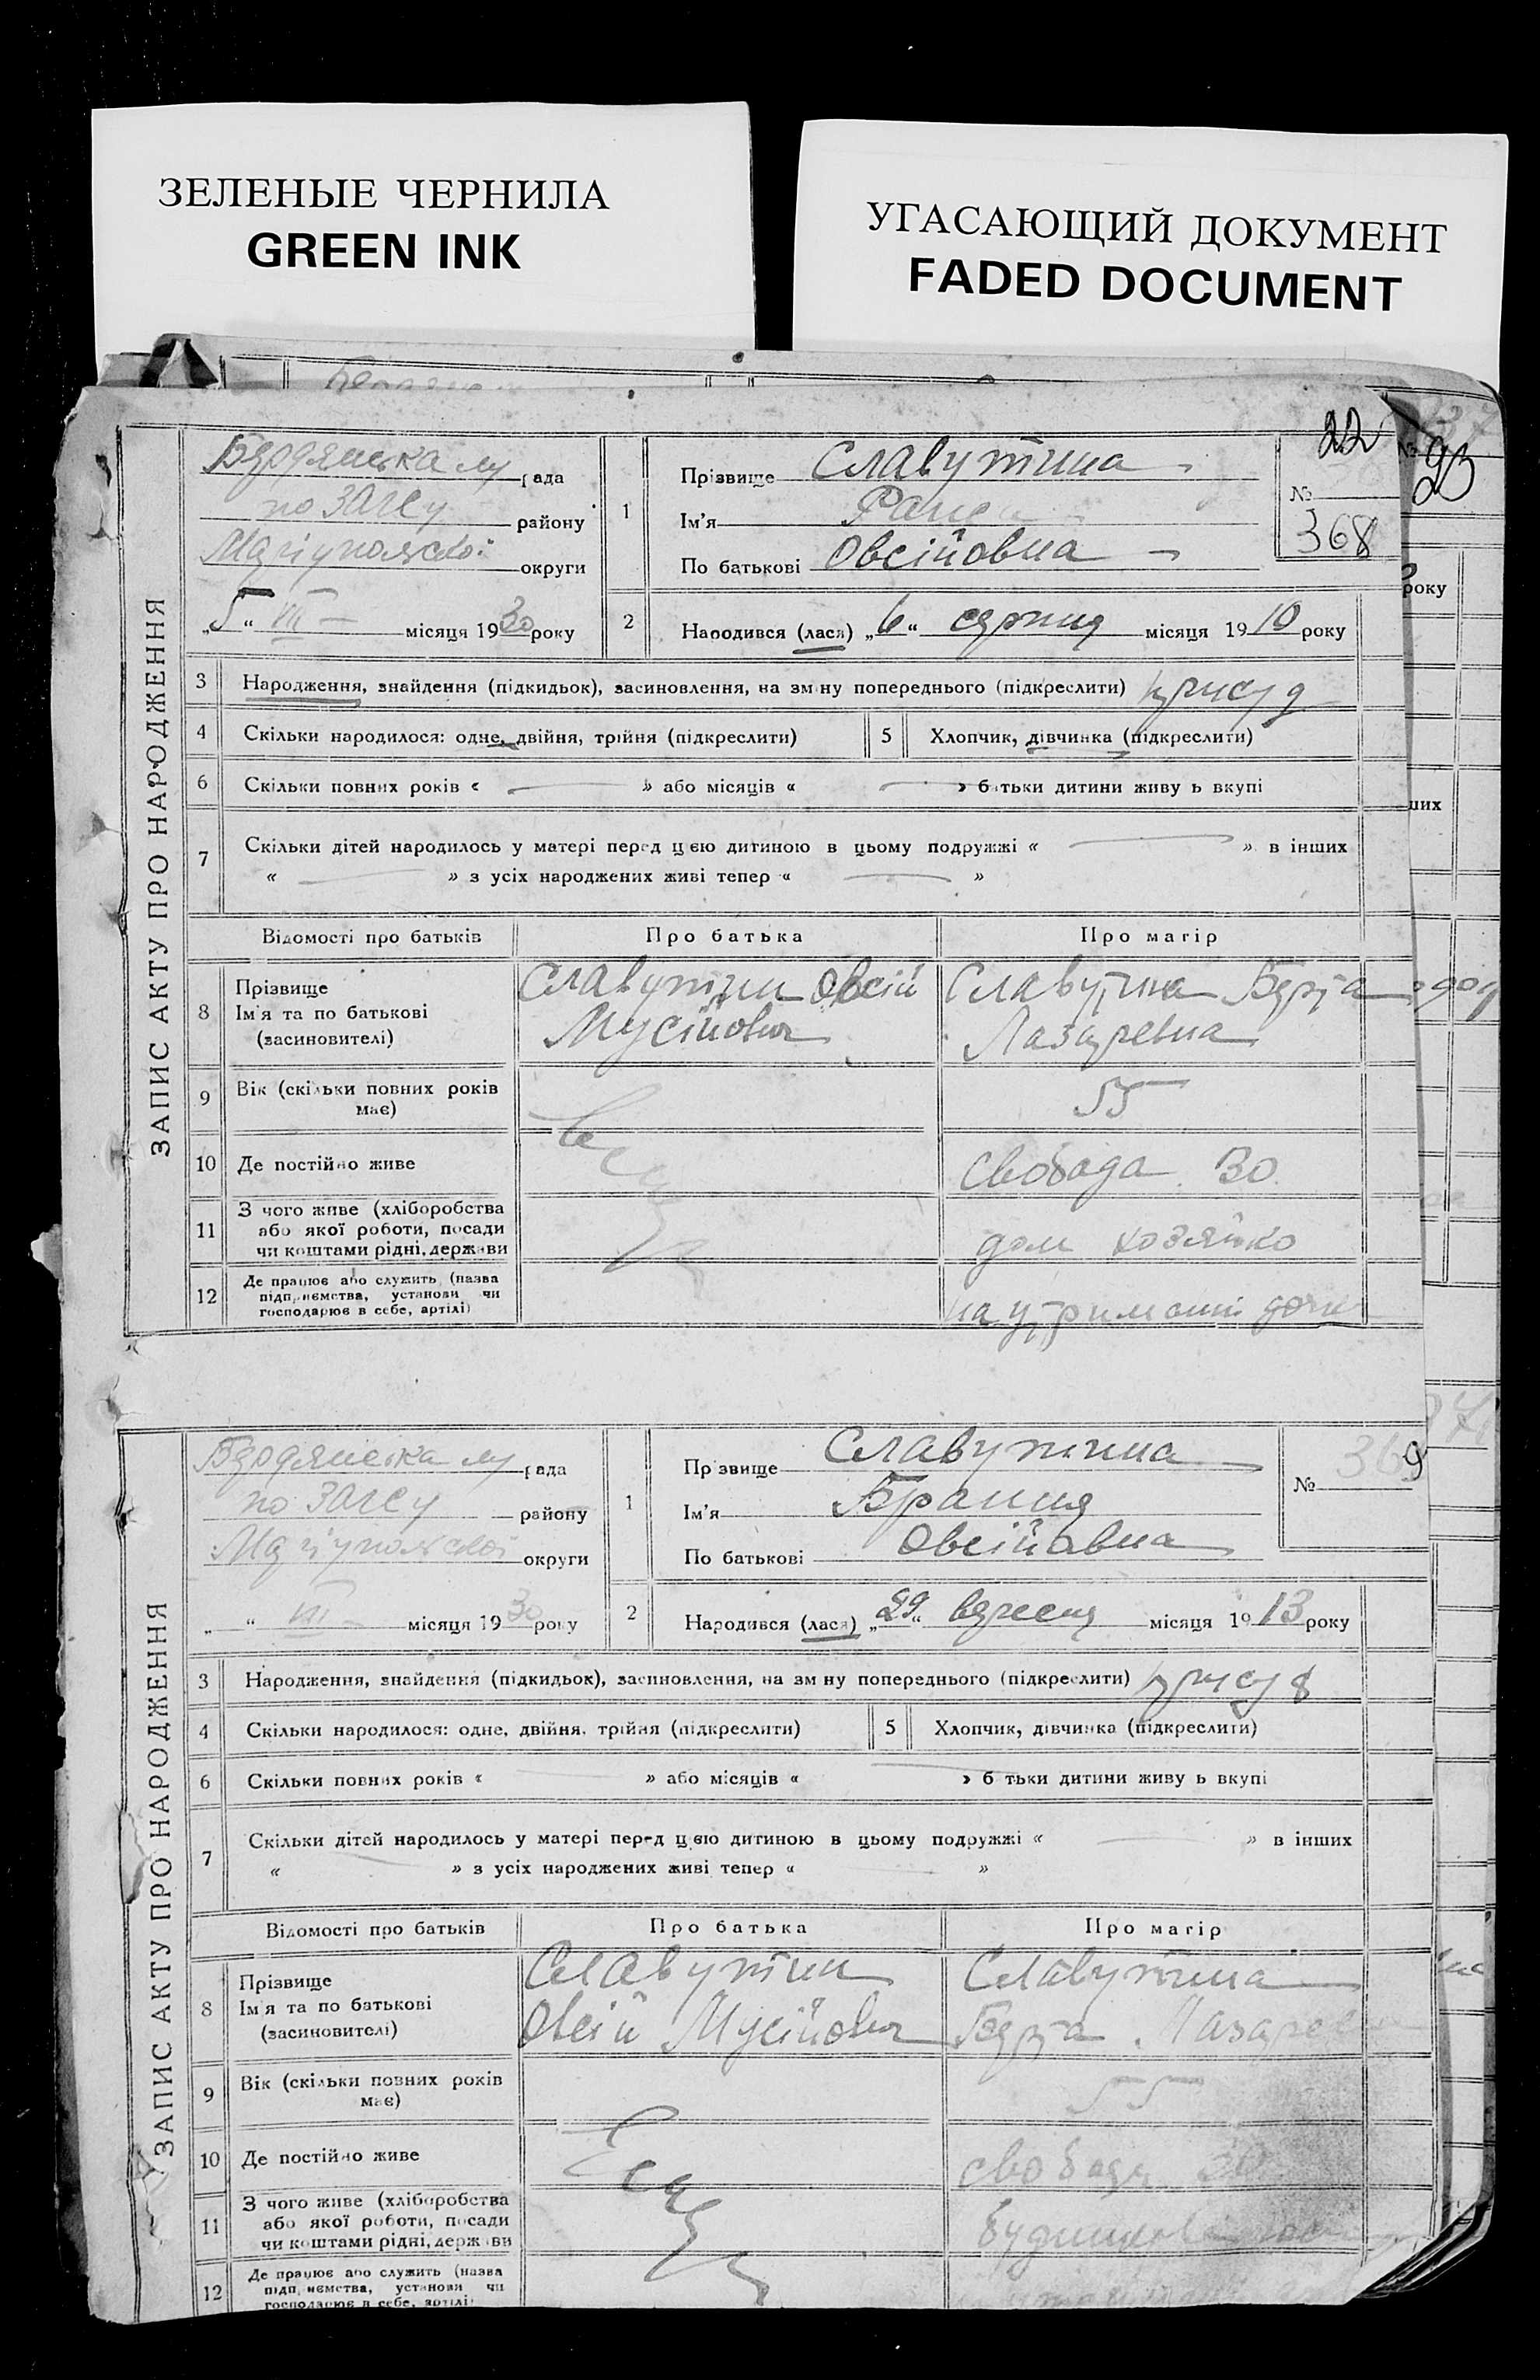 ЗЕЛЕНЫЕ ЧЕРНИЛА
GREEN INK
УГАСАЮЩИЙ ДОКУМЕНТ
FADED DOCUMENT
22
23
ЗАПИС АКТУ ПРО НАРОДЖЕННЯ
Бердянська рада
по ЗАГСу району
Маріупольської округи
„5“ VIII місяця 1930 року
1
Прізвище Славутіна
Ім'я
По батькові Овсіївна
№
368
2
Народився (лася) „6“ серпня місяця 1910 року
3 Народження, знайдення (підкидьок), засиновлення, на зміну попереднього (підкреслити) присуд
4 Скільки народилося: одне, двійня, трійня (підкреслити) 5 Хлопчик, дівчинка (підкреслити)
6 Скільки повних років « » або місяців « » батьки дитини живуть вкупі
7 Скільки дітей народилось у матері перед цією дитиною в цьому подружжі « » в інших
« » з усіх народжених живі тепер « »
Відомості про батьків Про батька Про матір
8 Прізвище
Ім'я та по батькові
(засиновителі)
Славутін Овсій
Мусійович
Славутіна Берта
Лазаревна
9 Вік (скільки повних років має) 55
10 Де постійно живе Свобода 30
11 З чого живе (хліборобства
або якої роботи, посади
чи коштами рідні, держави
дом хозяйко
12 Де працює або служить (назва
підприємства, установи чи
господарює в себе, артілі)
на утриманні дочки
ЗАПИС АКТУ ПРО НАРОДЖЕННЯ
Бердянська рада
по ЗАГСу району
Маріупольської округи
„ “ VIII місяця 1930 року
1
Прізвище Славутіна
Ім'я Брання
По батькові Овсійавна
№ 369
2
Народився (лася) „29“ вересня місяця 1913 року
3 Народження, знайдення (підкидьок), засиновлення, на зміну попереднього (підкреслити) присуд
4 Скільки народилося: одне, двійня, трійня (підкреслити) 5 Хлопчик, дівчинка (підкреслити)
6 Скільки повних років « » або місяців « » батьки дитини живуть вкупі
7 Скільки дітей народилось у матері перед цією дитиною в цьому подружжі « » в інших
« » з усіх народжених живі тепер « »
Відомості про батьків Про батька Про матір
8 Прізвище
Ім'я та по батькові
(засиновителі)
Славутін
Овсій Мусійович
Славутіна
Берта Лазаревна
9 Вік (скільки повних років має) 55
10 Де постійно живе Свобода 30
11 З чого живе (хліборобства
або якої роботи, посади
чи коштами рідні, держави
12 Де працює або служить (назва
підприємства, установи чи
господарює в себе, артілі)
року